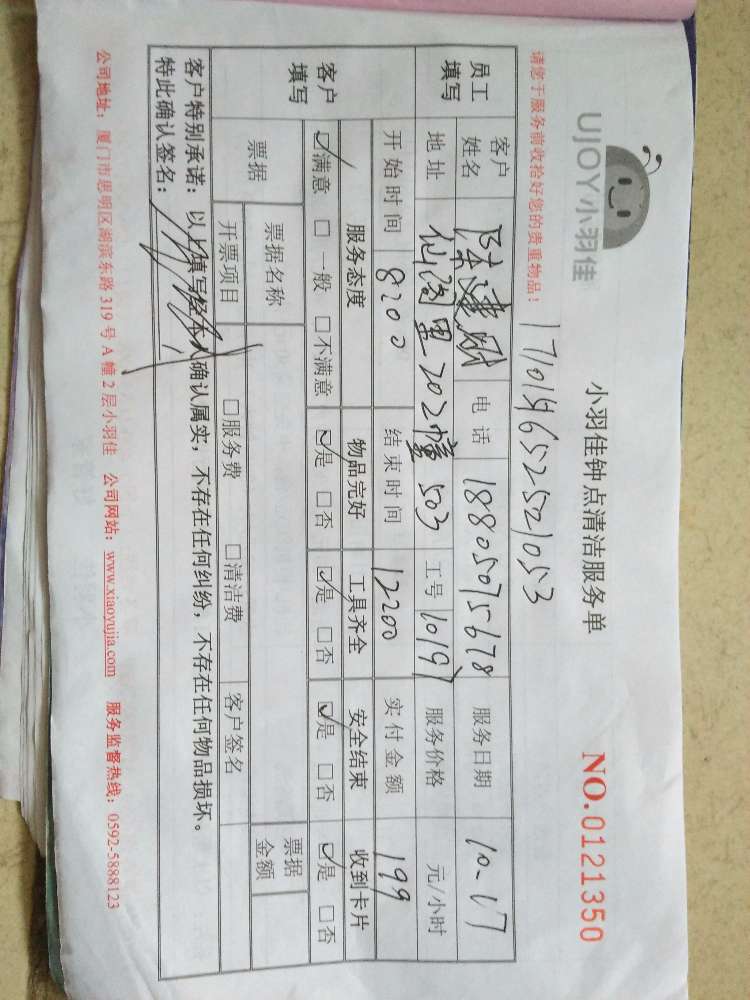 UJOY小羽佳
小羽佳钟点清洁服务单
NO.0121350
请您于服务前收拾好您的贵重物品！
171019652521053
员工填写 客户姓名 陈建 电话 18805075678 服务日期 10-17
地址 仙阁里202幢503 工号 10197 服务价格 元/小时
开始时间 8:00 结束时间 12:00 实付金额 199
客户填写 服务态度 物品完好 工具齐全 安全结束 收到卡片
☑满意 □一般 □不满意 ☑是 □否 ☑是 □否 ☑是 □否 ☑是 □否
票据 票据名称 票据金额
开票项目 □服务费 □清洁费 客户签名
客户特别承诺：以上填写经本人确认属实，不存在任何纠纷，不存在任何物品损坏。
特此确认签名：
公司地址：厦门市思明区湖滨东路319号A幢2层小羽佳 公司网站：www.xiaoyujia.com 服务监督热线：0592-5888123